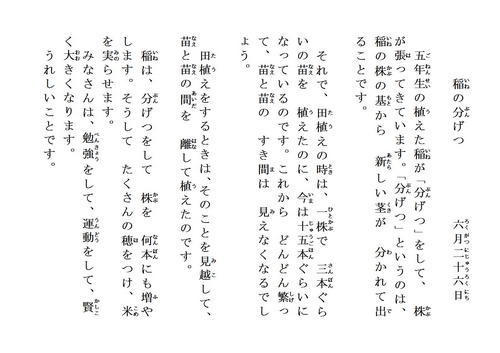 稲の分げつ　　六月二十六日
五年生の植えた稲が「分げつ」をして、　株
が張ってきています。「分げつ」というのは、
稲の株の基から　新しい茎が　分かれて出
ることです。
それで、田植えの時は、一株で　三本ぐら
いの苗を　植えたのに、今は十五本ぐらいに
なっているのです。これから　どんどん繁っ
て、苗と苗の　すき間は　見えなくなるでし
ょう。
田植えをするときは、そのことを見越して、
苗と苗の間を　離して植えたのです。
稲は、分げつをして　株を　何本にも増や
します。そうして　たくさんの穂をつけ、米
を実らせます。
みなさんは、勉強をして、運動をして、賢
く大きくなります。
うれしいことです。